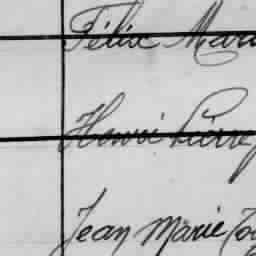 Félix Mari
Henri Pierre
Jean Marie To